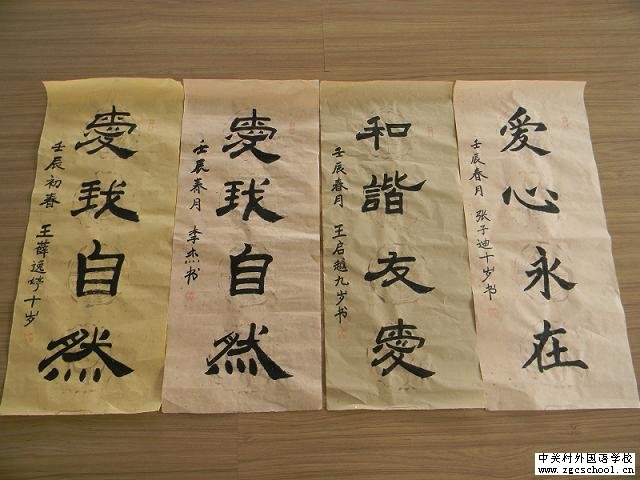 愛我自然
壬辰初春 王薛远十岁
愛我自然
壬辰春月 李杰书
和諧友愛
壬辰春月 王启越九岁书
爱心永在
壬辰春月 张子迪十岁书
中关村外国语学校
www.zgcschool.cn